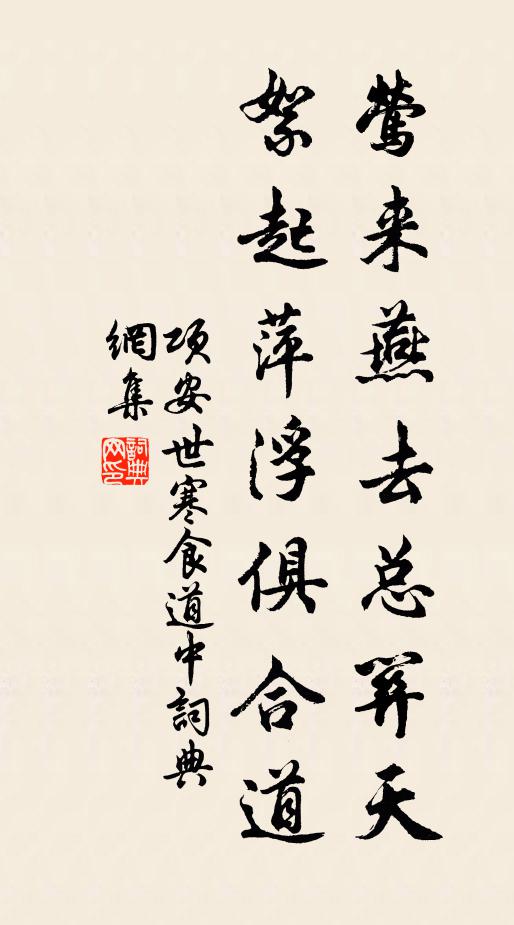 鶯来燕去总關天
絮起萍浮俱合道
項安世寒食道中詞典
網集
詞典
网印